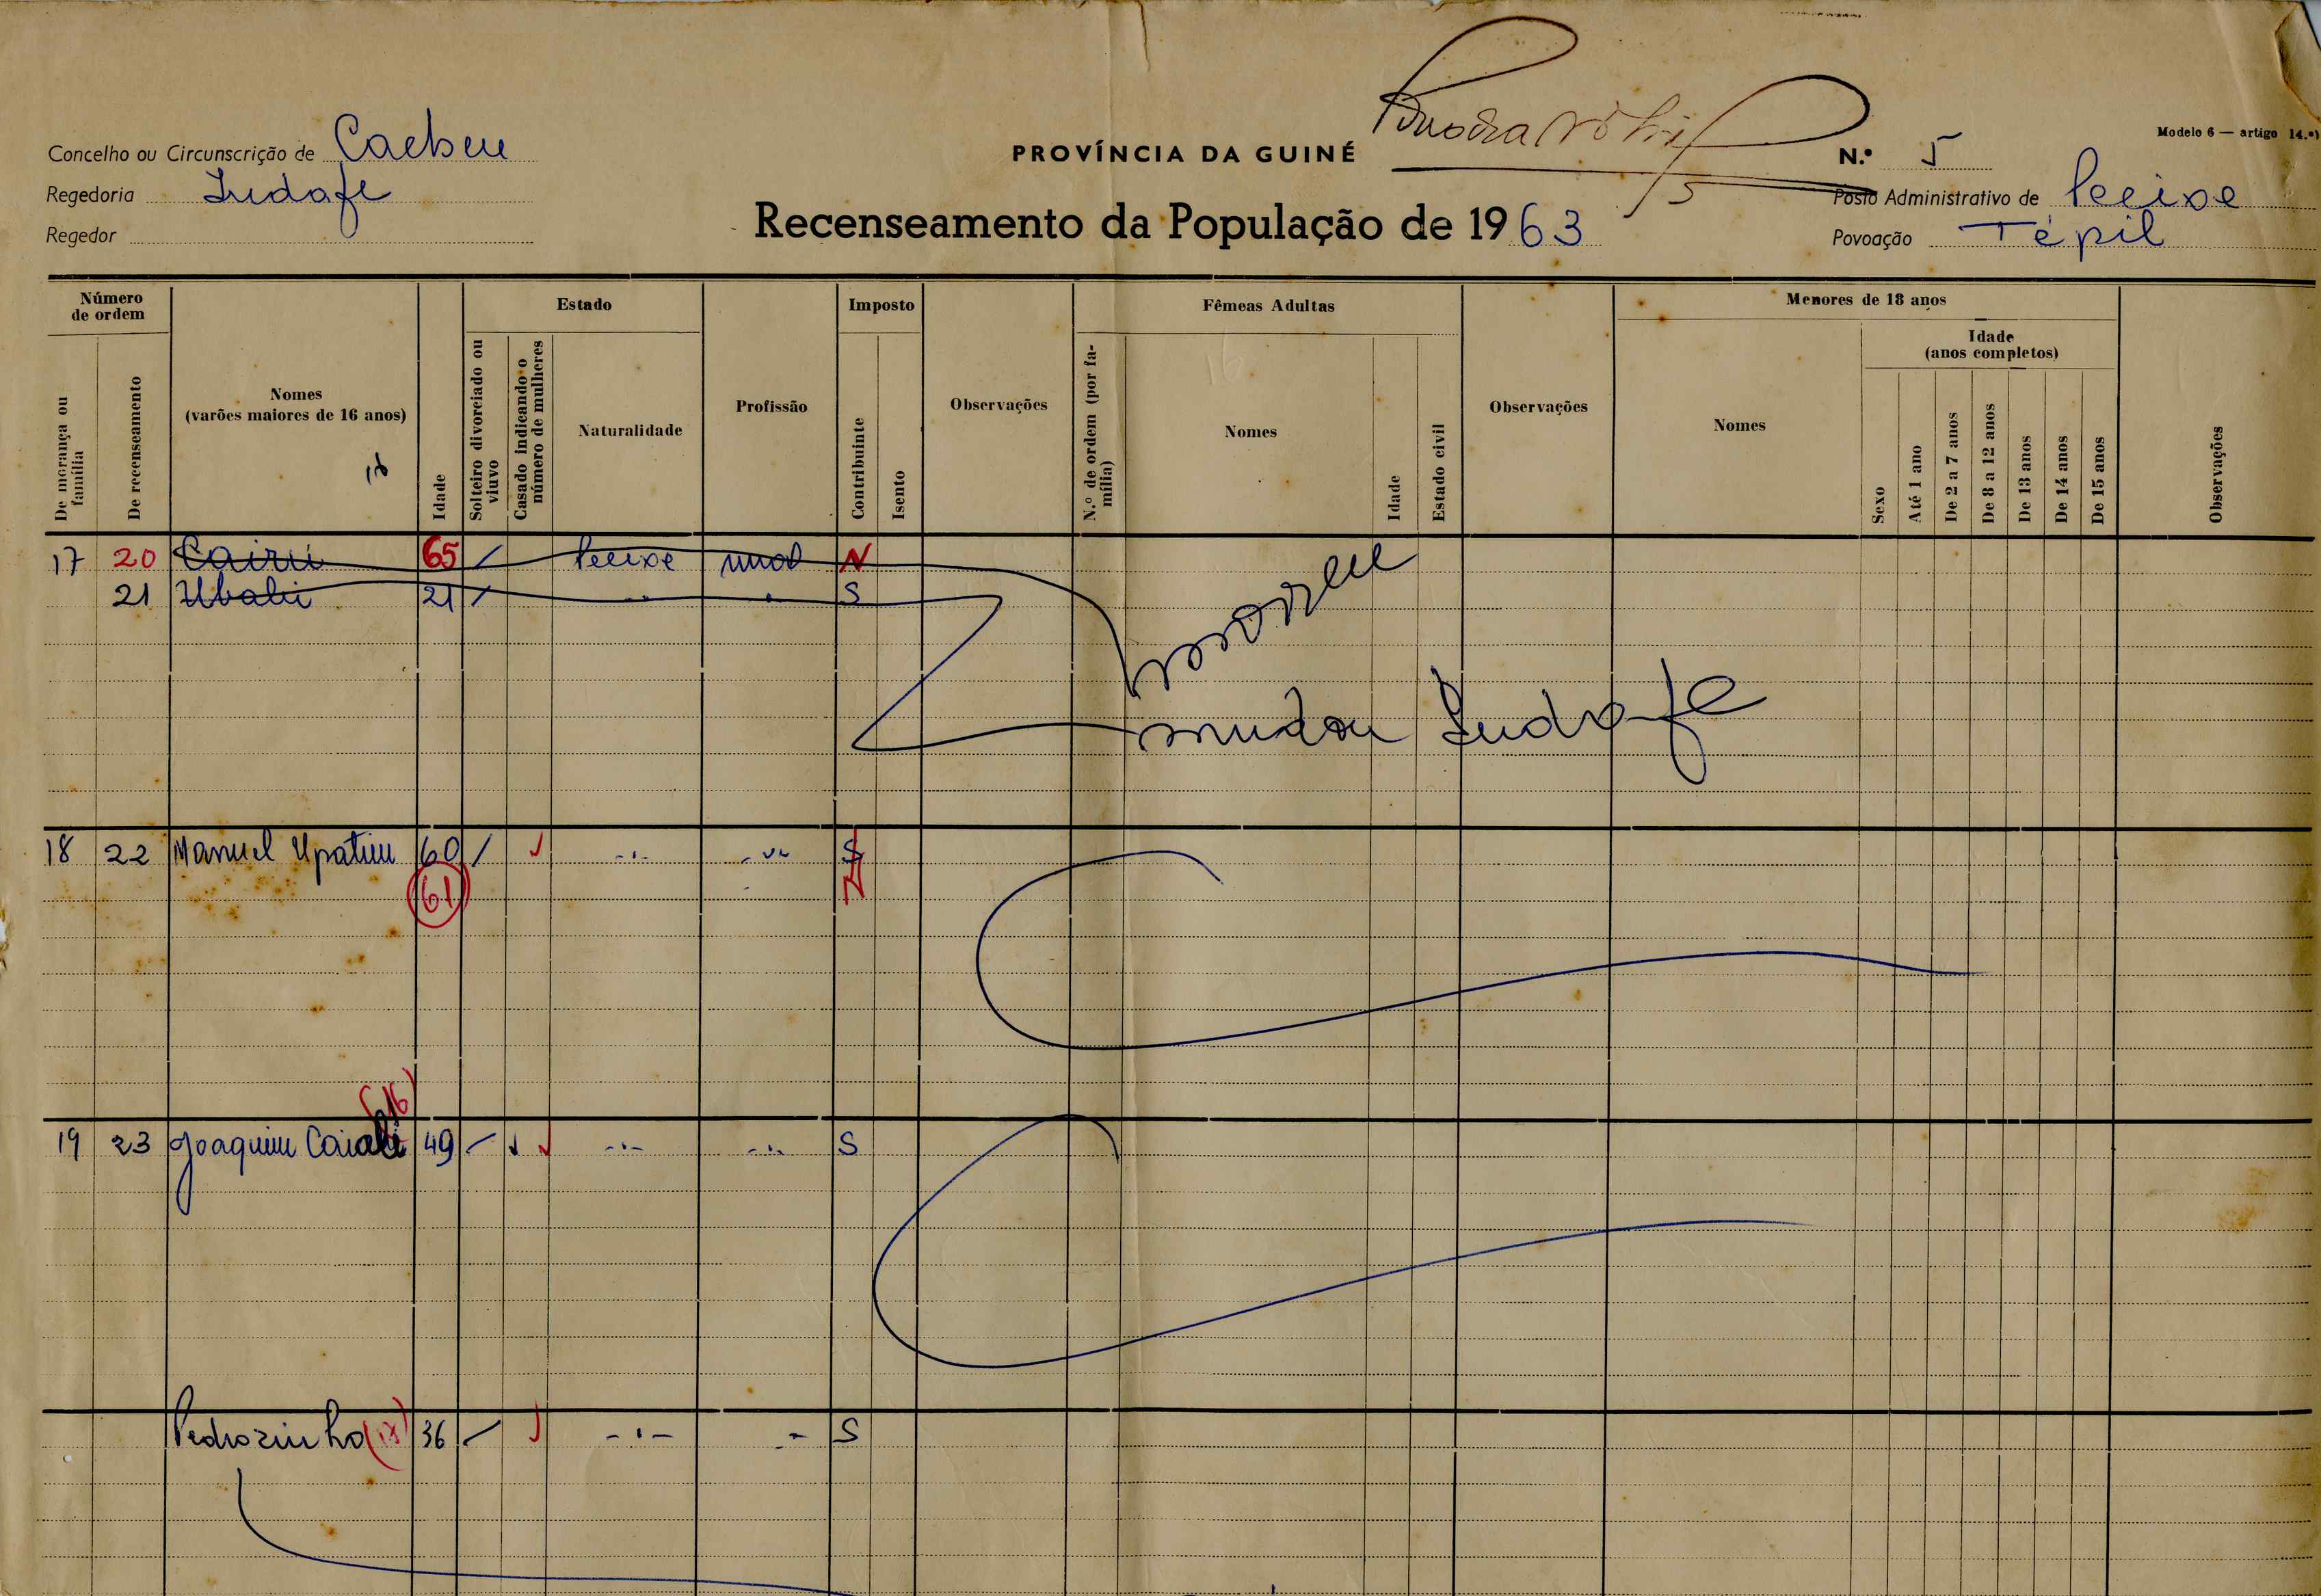 Modelo 6 — artigo 14.º)
Concelho ou Circunscrição de Cacheu
PROVÍNCIA DA GUINÉ
N.º 5
Regedoria Indafe
Posto Administrativo de Pecixe
Recenseamento da População de 1963
Regedor
Povoação Tépil
Número de ordem
Estado
Imposto
Fêmeas Adultas
Menores de 18 anos
De morança ou família
De recenseamento
Nomes
(varões maiores de 16 anos)
Idade
Solteiro divorciado ou viuvo
Casado indicando o número de mulheres
Naturalidade
Profissão
Contribuinte
Isento
Observações
N.º de ordem (por família)
Nomes
Idade
Estado civil
Observações
Nomes
Sexo
Idade
(anos completos)
Até 1 ano
De 2 a 7 anos
De 8 a 12 anos
De 13 anos
De 14 anos
De 15 anos
Observações
17 20 Cairu 65 / Pecixe N
21 Ubali 21 / " " S
morreu
mudou Indafe
18 22 Manuel Upatiu 60 / S
61 N
19 23 Joaquim Caiali 49 S
Pedrozinho 36 S